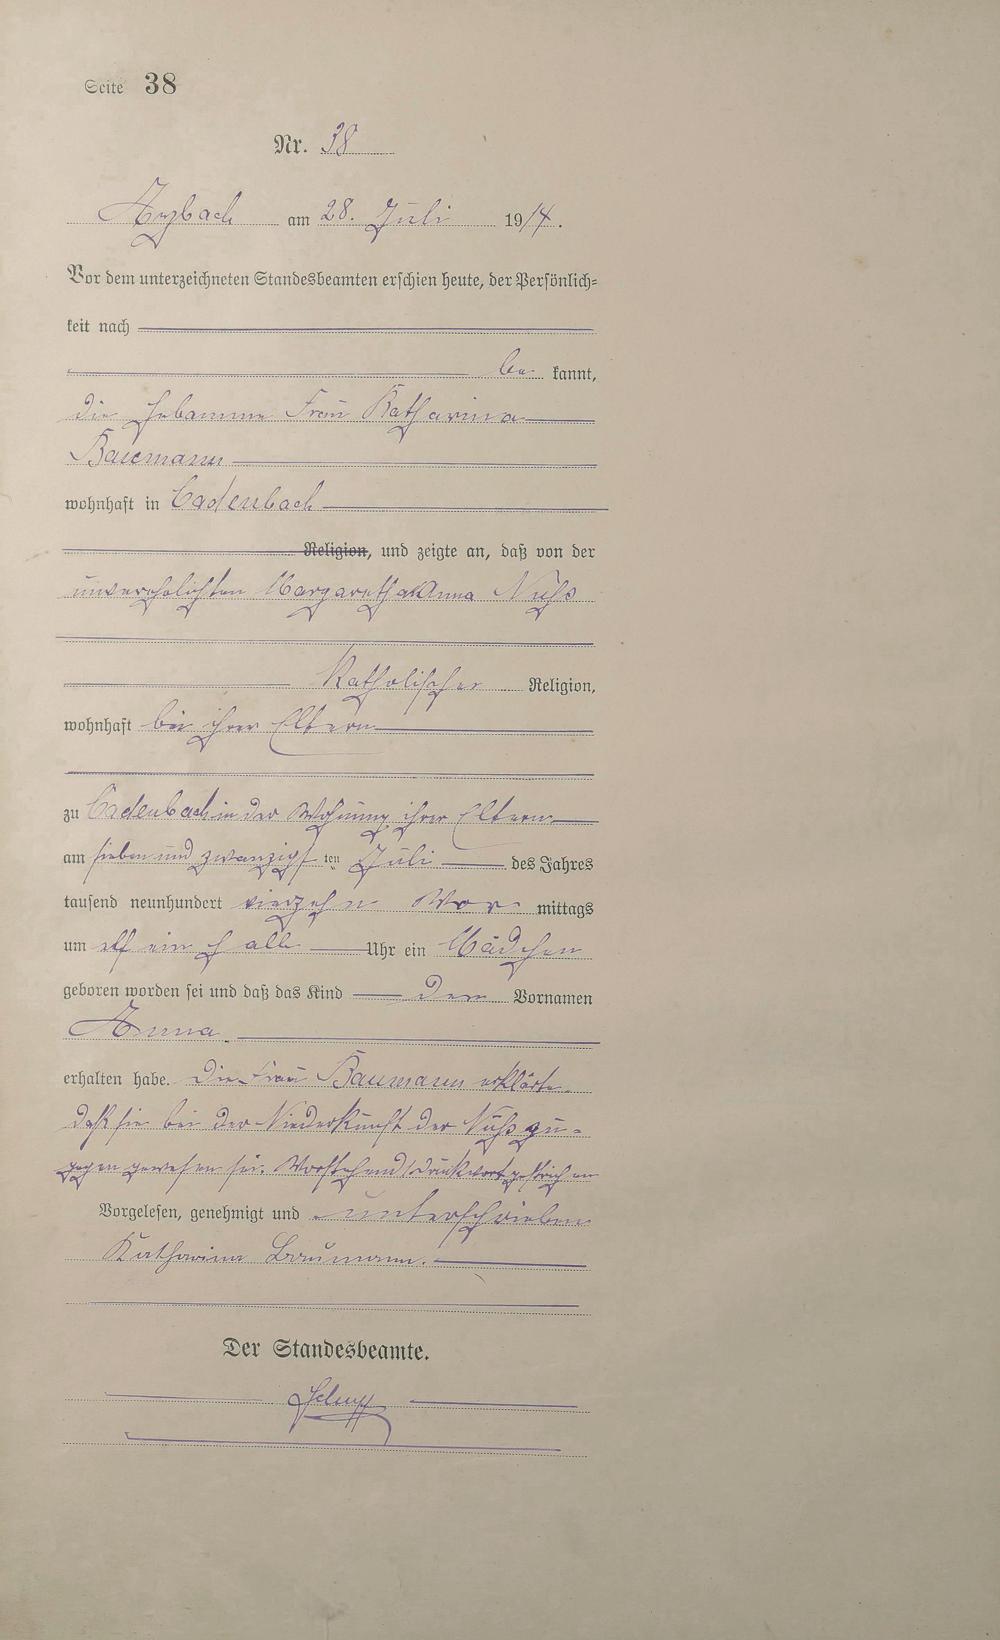 Seite 38
Nr. 38
Arzbach am 28. Juli 1914.
Vor dem unterzeichneten Standesbeamten erschien heute, der Persönlich=
keit nach
be kannt,
die Hebamme Frau Katharina
Baumann
wohnhaft in Cadenbach
Religion, und zeigte an, daß von der
unverehelichten Margaretha Anna Nüß
Katholischer Religion,
wohnhaft bei ihren Eltern
zu Cadenbach in der Wohnung ihrer Eltern
am sieben und zwanzigsten Juli des Jahres
tausend neunhundert vierzehn Vor mittags
um elf ein halb Uhr ein Mädchen
geboren worden sei und daß das Kind den Vornamen
Anna
erhalten habe. Die Frau Baumann erklärte
daß sie bei der Niederkunft der Nüß zu=
gegen gewesen sei. Vorstehend 1 Druckwort gestrichen
Vorgelesen, genehmigt und unterschrieben
Katharina Baumann.
Der Standesbeamte.